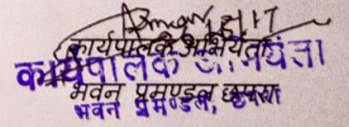 कार्यपालक अभियंता
कार्यपालक अभियंता
भवन प्रमण्डल, छपरा
भवन प्रमण्डल, छपरा